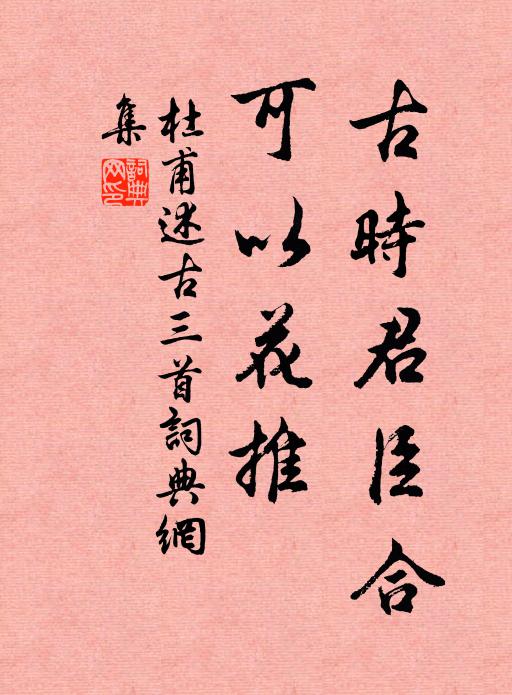 古時君臣合
可以花推
杜甫述古三首詞典網
集
詞典網印